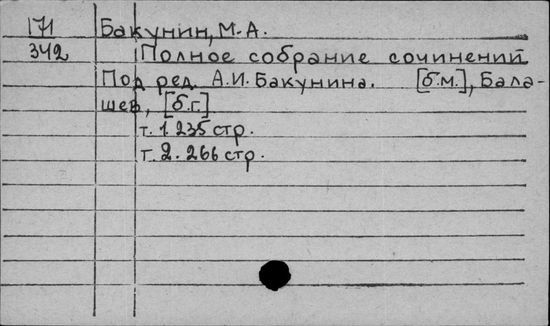 171 Бакунин, М.А.
342 Полное собрание сочинений
Под ред. А.И. Бакунина. [б.м.], Бала-
шев, [б.г.]
т. 1. 235 стр.
т. 2. 266 стр.